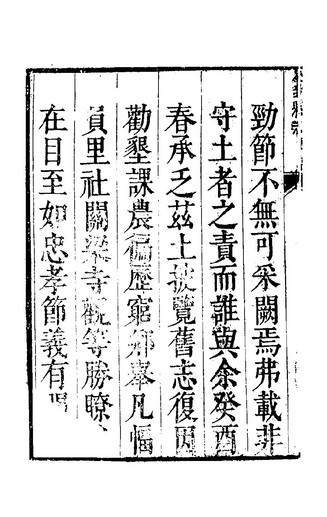 勁節不無可采闕焉弗載非
守土者之責而誰與余癸酉
春承乏茲土披覽舊志復因
勸墾課農徧歷窮鄉舉凡幅
員里社關梁寺觀等勝瞭
在目至如忠孝節義有